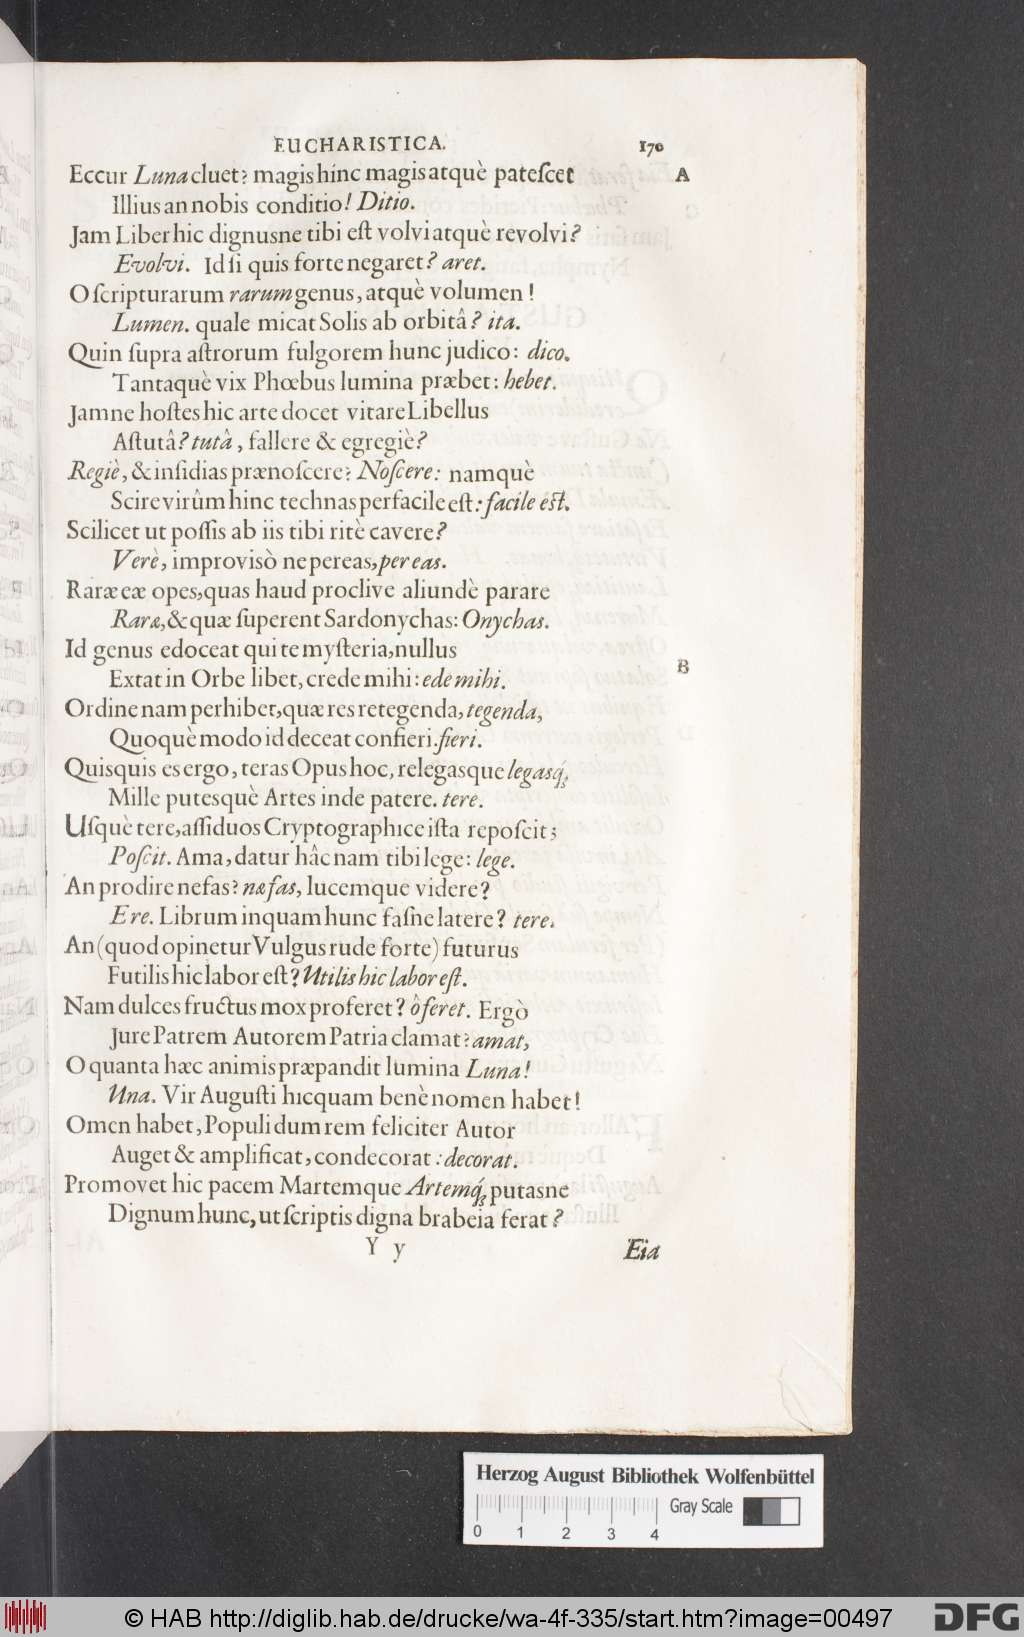 EUCHARISTICA. 170
Eccur Luna cluet? magis hinc magis atquè patescet A
Illius an nobis conditio! Ditio.
Jam Liber hic dignusne tibi est volvi atquè revolvi?
Evolvi. Id si quis forte negaret? aret.
O scripturarum rarum genus, atquè volumen!
Lumen. quale micat Solis ab orbitâ? ita.
Quin supra astrorum fulgorem hunc judico: dico.
Tantaquè vix Phœbus lumina præbet: hebet.
Jamne hostes hic arte docet vitare Libellus
Astutâ? tutâ, fallere & egregiè?
Regiè, & insidias prænoscere? Noscere: namquè
Scire virûm hinc technas perfacile est: facile est.
Scilicet ut possis ab iis tibi ritè cavere?
Verè, improvisò ne pereas, per eas.
Raræ eæ opes, quas haud proclive aliundè parare
Raræ, & quæ superent Sardonychas: Onychas.
Id genus edoceat qui te mysteria, nullus
Extat in Orbe libet, crede mihi: ede mihi. B
Ordine nam perhibet, quæ res retegenda, tegenda,
Quoquè modo id deceat confieri. fieri.
Quisquis es ergo, teras Opus hoc, relegasque legasq́;
Mille putesquè Artes inde patere. tere.
Usquè tere, assiduos Cryptographice ista reposcit;
Poscit. Ama, datur hâc nam tibi lege: lege.
An prodire nefas? næ fas, lucemque videre?
Ere. Librum inquam hunc fasne latere? tere.
An (quod opinetur Vulgus rude forte) futurus
Futilis hic labor est? Utilis hic labor est.
Nam dulces fructus mox proferet? ôferet. Ergò
Jure Patrem Autorem Patria clamat? amat,
O quanta hæc animis præpandit lumina Luna!
Una. Vir Augusti hicquam benè nomen habet!
Omen habet, Populi dum rem feliciter Autor
Auget & amplificat, condecorat: decorat.
Promovet hic pacem Martemque Artemq́; putasne
Dignum hunc, ut scriptis digna brabeia ferat?
Y y Eia
Herzog August Bibliothek Wolfenbüttel
Gray Scale
0 1 2 3 4
© HAB http://diglib.hab.de/drucke/wa-4f-335/start.htm?image=00497 DFG